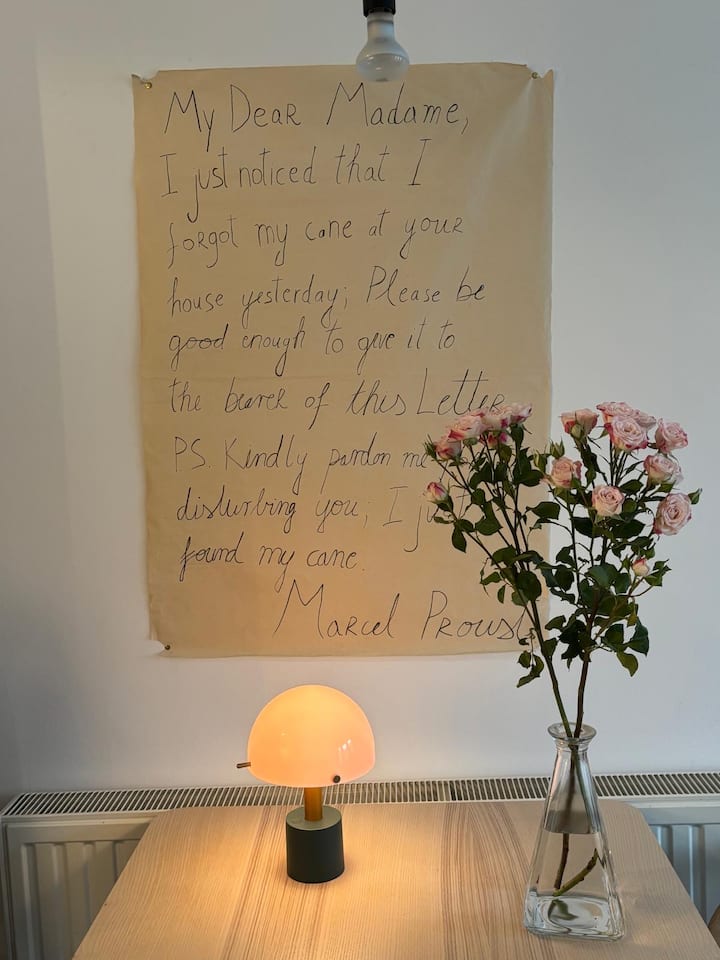 My Dear Madame,
I just noticed that I
forgot my cane at your
house yesterday; Please be
good enough to give it to
the bearer of this Letter
PS. Kindly pardon me
disturbing you; I just
found my cane.
Marcel Proust